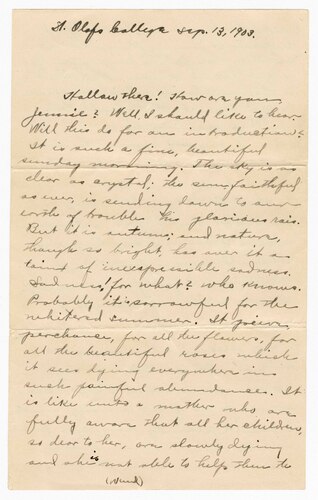 St. Olafs College Sep. 13, 1903.
Hallow there! How are you
Jennie? Well I should like to hear
Will this do for an introduction?
It is such a fine, beautiful
sunday morning. The sky is as
clear as crystal; the sun, faithful
as ever, is sending down to our
world of trouble his glorious rais.
But it is autum; and nature,
though so bright, has over it a
taint of inexpressible sadness.
Sadness! for what? who knows.
Probably it is sorrowful for the
whitered summer. It grieve
perchance, for all the flowers, for
all the beautiful roses which
it sees dying everywhere in
such painful abundance. It
is like unto a mother who are
fully aware that all her children,
so dear to her, are slowly dying
and she is not able to help them to